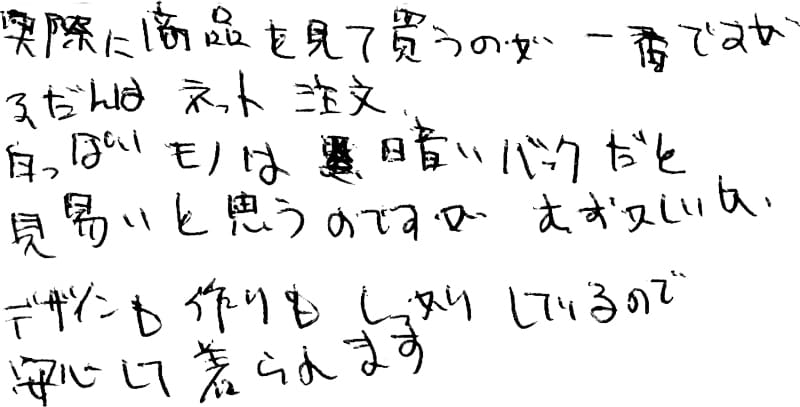 実際に商品を見て買うのが一番ですが
ふだんはネット注文、
白っぽいモノは暗いバックだと
見易いと思うのですが むずかしいね、
デザインも作りもしっかりしているので
安心して着られます